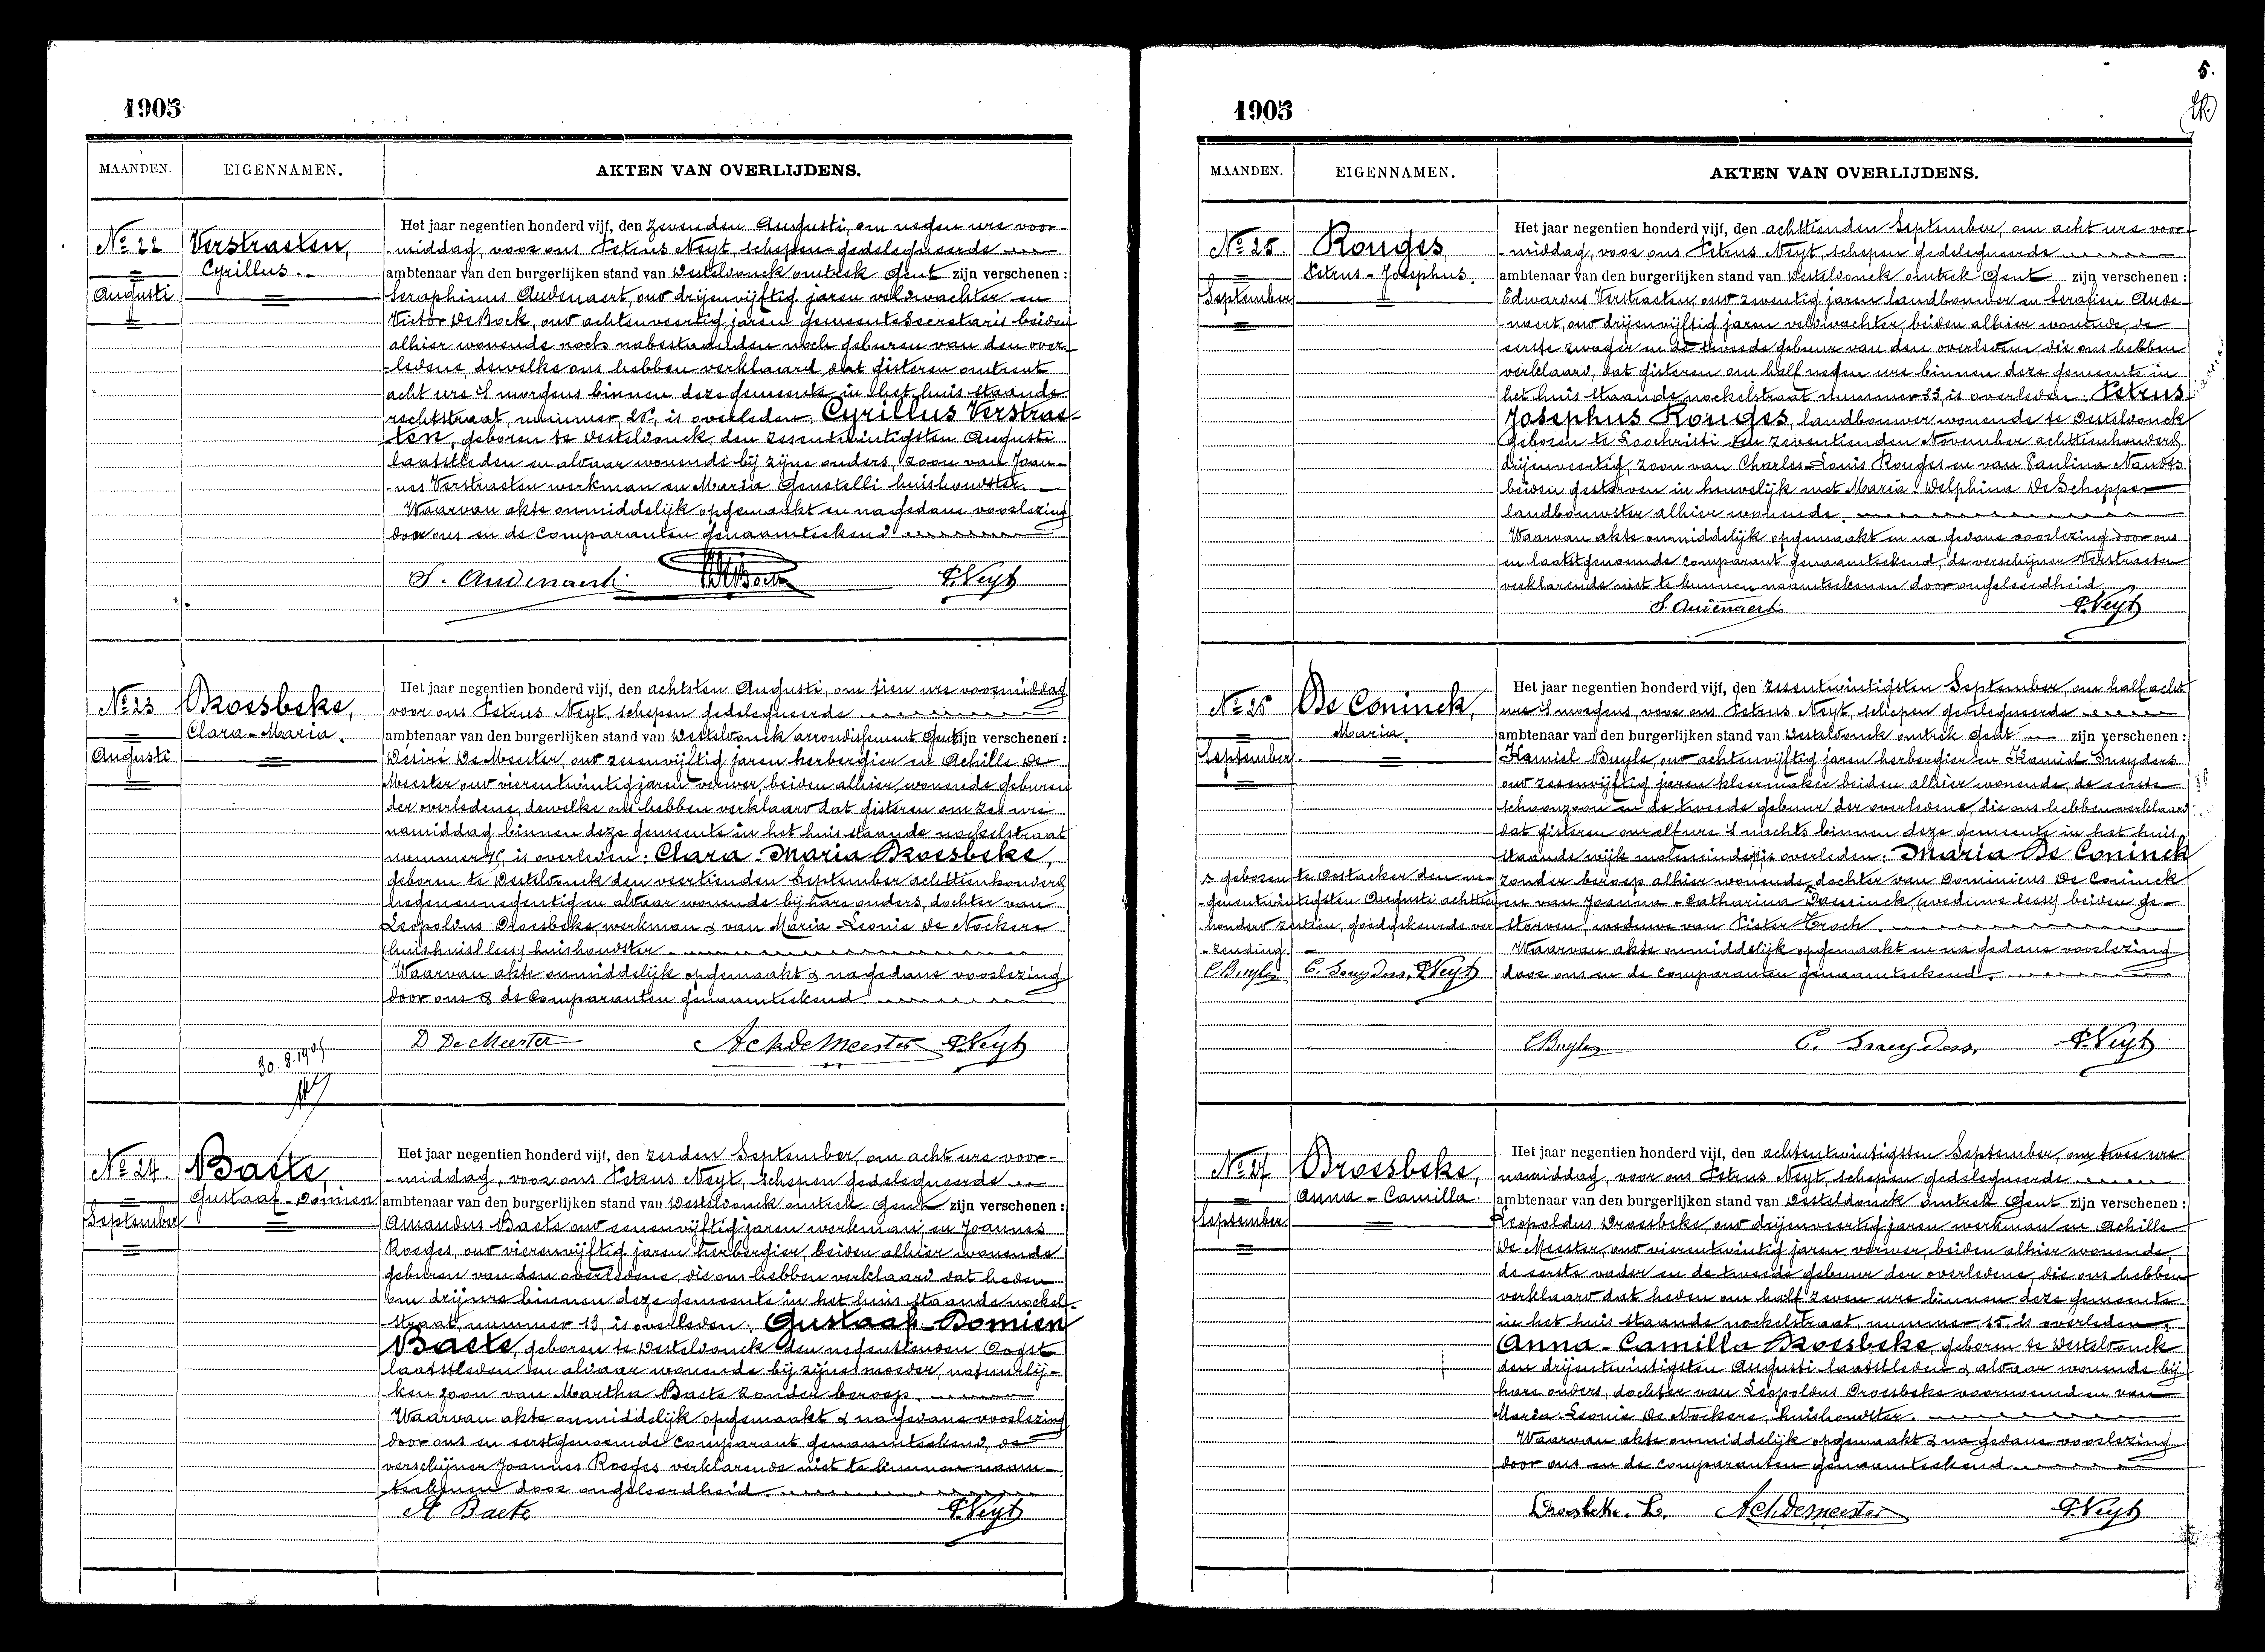 1905
MAANDEN. EIGENNAMEN. AKTEN VAN OVERLIJDENS.
No 22 Verstraeten,
Cyrillus.
Augusti
Het jaar negentien honderd vijf, den zevenden Augusti, om negen ure voor-
middag, voor ons Petrus Neyt, schepen gedelegueerde
ambtenaar van den burgerlijken stand van Desteldonck omtrek Gent zijn verschenen :
Seraphinus Audenaert, oud drijenvijftig jaren veldwachter en
Victor De Bock, oud achtenveertig jaren gemeentesecretaris beiden
alhier wonende noch nabestaanden noch geburen van den over-
ledene, dewelke ons hebben verklaard dat gisteren omtrent
acht ure 's morgens binnen deze gemeente in het huis staande
rechtstraat, nummer is overleden: Cyrillus Verstrae-
ten, geboren te Desteldonck, den zessentwintigsten Augusti
laatstleden en aldaar wonende bij zijne ouders, zoon van Joan-
nes Verstraeten werkman en Maria Genetelli huishoudster.
Waarvan akte onmiddelijk opgemaakt en na gedane voorlezing
door ons en de comparanten genaamteekend
S. Audenaert VDeBock P. Neyt
No 23 Droesbeke,
Clara-Maria.
Augusti
Het jaar negentien honderd vijf, den achtsten Augusti, om tien ure voormiddag
voor ons Petrus Neyt, schepen gedelegueerde
ambtenaar van den burgerlijken stand van Desteldonck arrondissement Gent zijn verschenen :
Désiré De Meester, oud zessenvijftig jaren herbergier en Achille De
Meester oud vierentwintig jaren verwer, beiden alhier wonende geburen
der overledene, dewelke ons hebben verklaard dat gisteren om zes ure
namiddag binnen deze gemeente in het huis staande nockelstraat
nummer 15, is overleden: Clara-Maria Droesbeke,
geboren te Desteldonck den veertienden September achttienhonderd
negenennegentig en aldaar wonende bij hare ouders, dochter van
Leopoldus Droesbeke, werkman & van Maria-Leonie De Nockere
(huishuist lees) huishoudster.
Waarvan akte onmiddelijk opgemaakt & na gedane voorlezing
door ons & de comparanten genaamteekend.
30.8.1905
D De Meester AchdeMeester P. Neyt
No 24. Baete,
Gustaaf-Domien
September
Het jaar negentien honderd vijf, den zesden September, om acht ure voor-
middag, voor ons Petrus Neyt, schepen gedelegueerde
ambtenaar van den burgerlijken stand van Desteldonck omtrek Gent zijn verschenen :
Amandus Baete oud eenenvijftig jaren werkman en Joannes
Roeges, oud vierenvijftig jaren herbergier, beiden alhier wonende
geburen van den overledene, die ons hebben verklaard dat heden
om drij ure binnen deze gemeente in het huis staande nockel-
straat, nummer 13, is overleden: Gustaaf-Domien
Baete, geboren te Desteldonck den negentienden Oogst
laatstleden en aldaar wonende bij zijne moeder, natuurlij-
ken zoon van Martha Baete zonder beroep.
Waarvan akte onmiddelijk opgemaakt & na gedane voorlezing
door ons en eerstgenoemde comparant genaamteekend, de
verschijner Joannes Roeges verklarende niet te kunnen naam-
teekenen door ongeleerdheid.
A Baete P. Neyt
5.
1905
MAANDEN. EIGENNAMEN. AKTEN VAN OVERLIJDENS.
No 25. Rouges,
Petrus-Josephus.
September
Het jaar negentien honderd vijf, den achttienden September, om acht ure voor-
middag, voor ons Petrus Neyt, schepen gedelegueerde
ambtenaar van den burgerlijken stand van Desteldonck omtrek Gent zijn verschenen :
Edwardus Verstraeten, oud zeventig jaren landbouwer en Serafien Aude-
naert, oud drijenvijftig jaren veldwachter, beiden alhier wonende, de
eerste zwager en de tweede gebuur van den overledene, die ons hebben
verklaard, dat gisteren om half negen ure binnen deze gemeente in
het huis staande nockelstraat nummer 33, is overleden: Petrus
Josephus Rouges, landbouwer wonende te Desteldonck
geboren te Loochristi den zeventienden November achttienhonderd
drijenveertig, zoon van Charles-Louis Rouges en van Paulina Naudts
beiden gestorven in huwelijk met Maria-Delphina De Schepper
landbouwster alhier wonende.
Waarvan akte onmiddelijk opgemaakt en na gedane voorlezing door ons
en laatstgenoemde comparant genaamteekend, de verschijner Verstraeten
verklarende niet te kunnen naamteekenen door ongeleerdheid.
S. Audenaert P. Neyt
No 26 De Coninck,
Maria.
September.
Het jaar negentien honderd vijf, den zessentwintigsten September, om half acht
ure 's morgens, voor ons Petrus Neyt, schepen gedelegueerde
ambtenaar van den burgerlijken stand van Desteldonck omtrek Gent zijn verschenen :
Kamiel Buyle, oud achtenvijftig jaren herbergier en Kamiel Sneyders
oud zessenvijftig jaren kleermaker beiden alhier wonende, de eerste
schoonzoon en de tweede gebuur der overledene, die ons hebben verklaard
dat gisteren om elf ure 's nachts binnen deze gemeente in het huis
staande wijk moleneinde is overleden: Maria De Coninck
zonder beroep alhier wonende dochter van Dominicus De Coninck
en van Joanna-Catharina (weduwe lees) beiden ge-
storven, weduwe van Pieter
Waarvan akte onmiddelijk opgemaakt en na gedane voorlezing
door ons en de comparanten genaamteekend.
s geboren te Oostacker den ne-
genentwintigsten Augusti achttien
honderd zestien, goedgekeurde ver-
zending.
C Buyle C. Sneyders, P. Neyt
C Buyle C. Sneyders. P. Neyt
No 27 Droesbeke,
Anna-Camilla.
September.
Het jaar negentien honderd vijf, den achtentwintigsten September, om twee ure
namiddag, voor ons Petrus Neyt, schepen gedelegueerde
ambtenaar van den burgerlijken stand van Desteldonck omtrek Gent zijn verschenen :
Leopoldus Droesbeke oud drijenveertig jaren werkman en Achille
De Meester, oud vierentwintig jaren verwer, beiden alhier wonende,
de eerste vader en de tweede gebuur der overledene, die ons hebben
verklaard dat heden om half zeven ure binnen deze gemeente
in het huis staande nockelstraat, nummer 15, is overleden:
Anna-Camilla Droesbeke, geboren te Desteldonck
den drijentwintigsten Augusti laatstleden & aldaar wonende bij
hare ouders, dochter van Leopoldus Droesbeke voornoemd en van
Maria-Leonie De Nockere, huishoudster.
Waarvan akte onmiddelijk opgemaakt & na gedane voorlezing
door ons en de comparanten genaamteekend.
Droesbeke. L. AchdeMeester P. Neyt